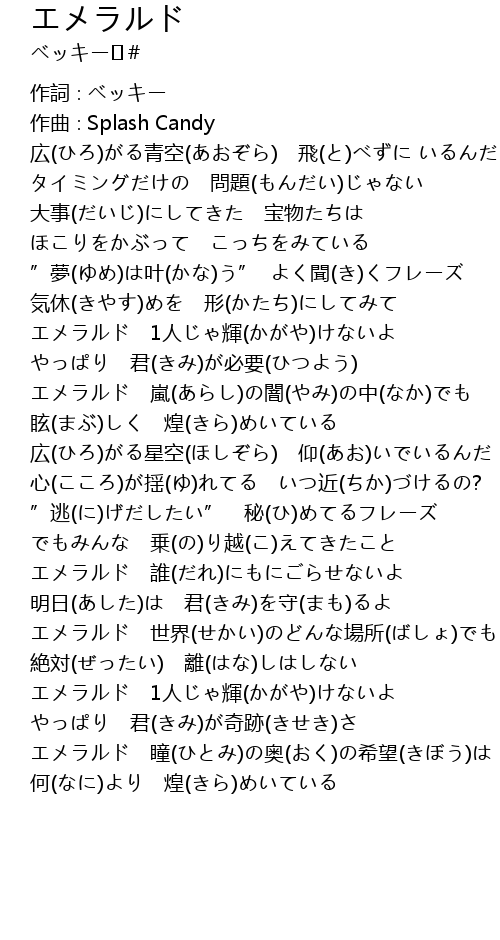 エメラルド
ベッキー♪#
作詞 : ベッキー
作曲 : Splash Candy
広(ひろ)がる青空(あおぞら)　飛(と)べずに いるんだ
タイミングだけの　問題(もんだい)じゃない
大事(だいじ)にしてきた　宝物たちは
ほこりをかぶって　こっちをみている
〃夢(ゆめ)は叶(かな)う〃　よく聞(き)くフレーズ
気休(きやす)めを　形(かたち)にしてみて
エメラルド　1人じゃ輝(かがや)けないよ
やっぱり　君(きみ)が必要(ひつよう)
エメラルド　嵐(あらし)の闇(やみ)の中(なか)でも
眩(まぶ)しく　煌(きら)めいている
広(ひろ)がる星空(ほしぞら)　仰(あお)いでいるんだ
心(こころ)が揺(ゆ)れてる　いつ近(ちか)づけるの?
〃逃(に)げだしたい〃　秘(ひ)めてるフレーズ
でもみんな　乗(の)り越(こ)えてきたこと
エメラルド　誰(だれ)にもにごらせないよ
明日(あした)は　君(きみ)を守(まも)るよ
エメラルド　世界(せかい)のどんな場所(ばしょ)でも
絶対(ぜったい)　離(はな)しはしない
エメラルド　1人じゃ輝(かがや)けないよ
やっぱり　君(きみ)が奇跡(きせき)さ
エメラルド　瞳(ひとみ)の奥(おく)の希望(きぼう)は
何(なに)より　煌(きら)めいている